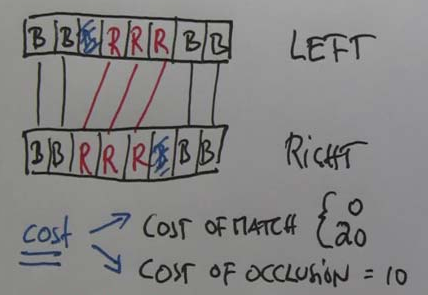 B B B R R R B B
LEFT
B B R R R B B B
RIGHT
COST
COST OF MATCH { 0
20
COST OF OCCLUSION = 10